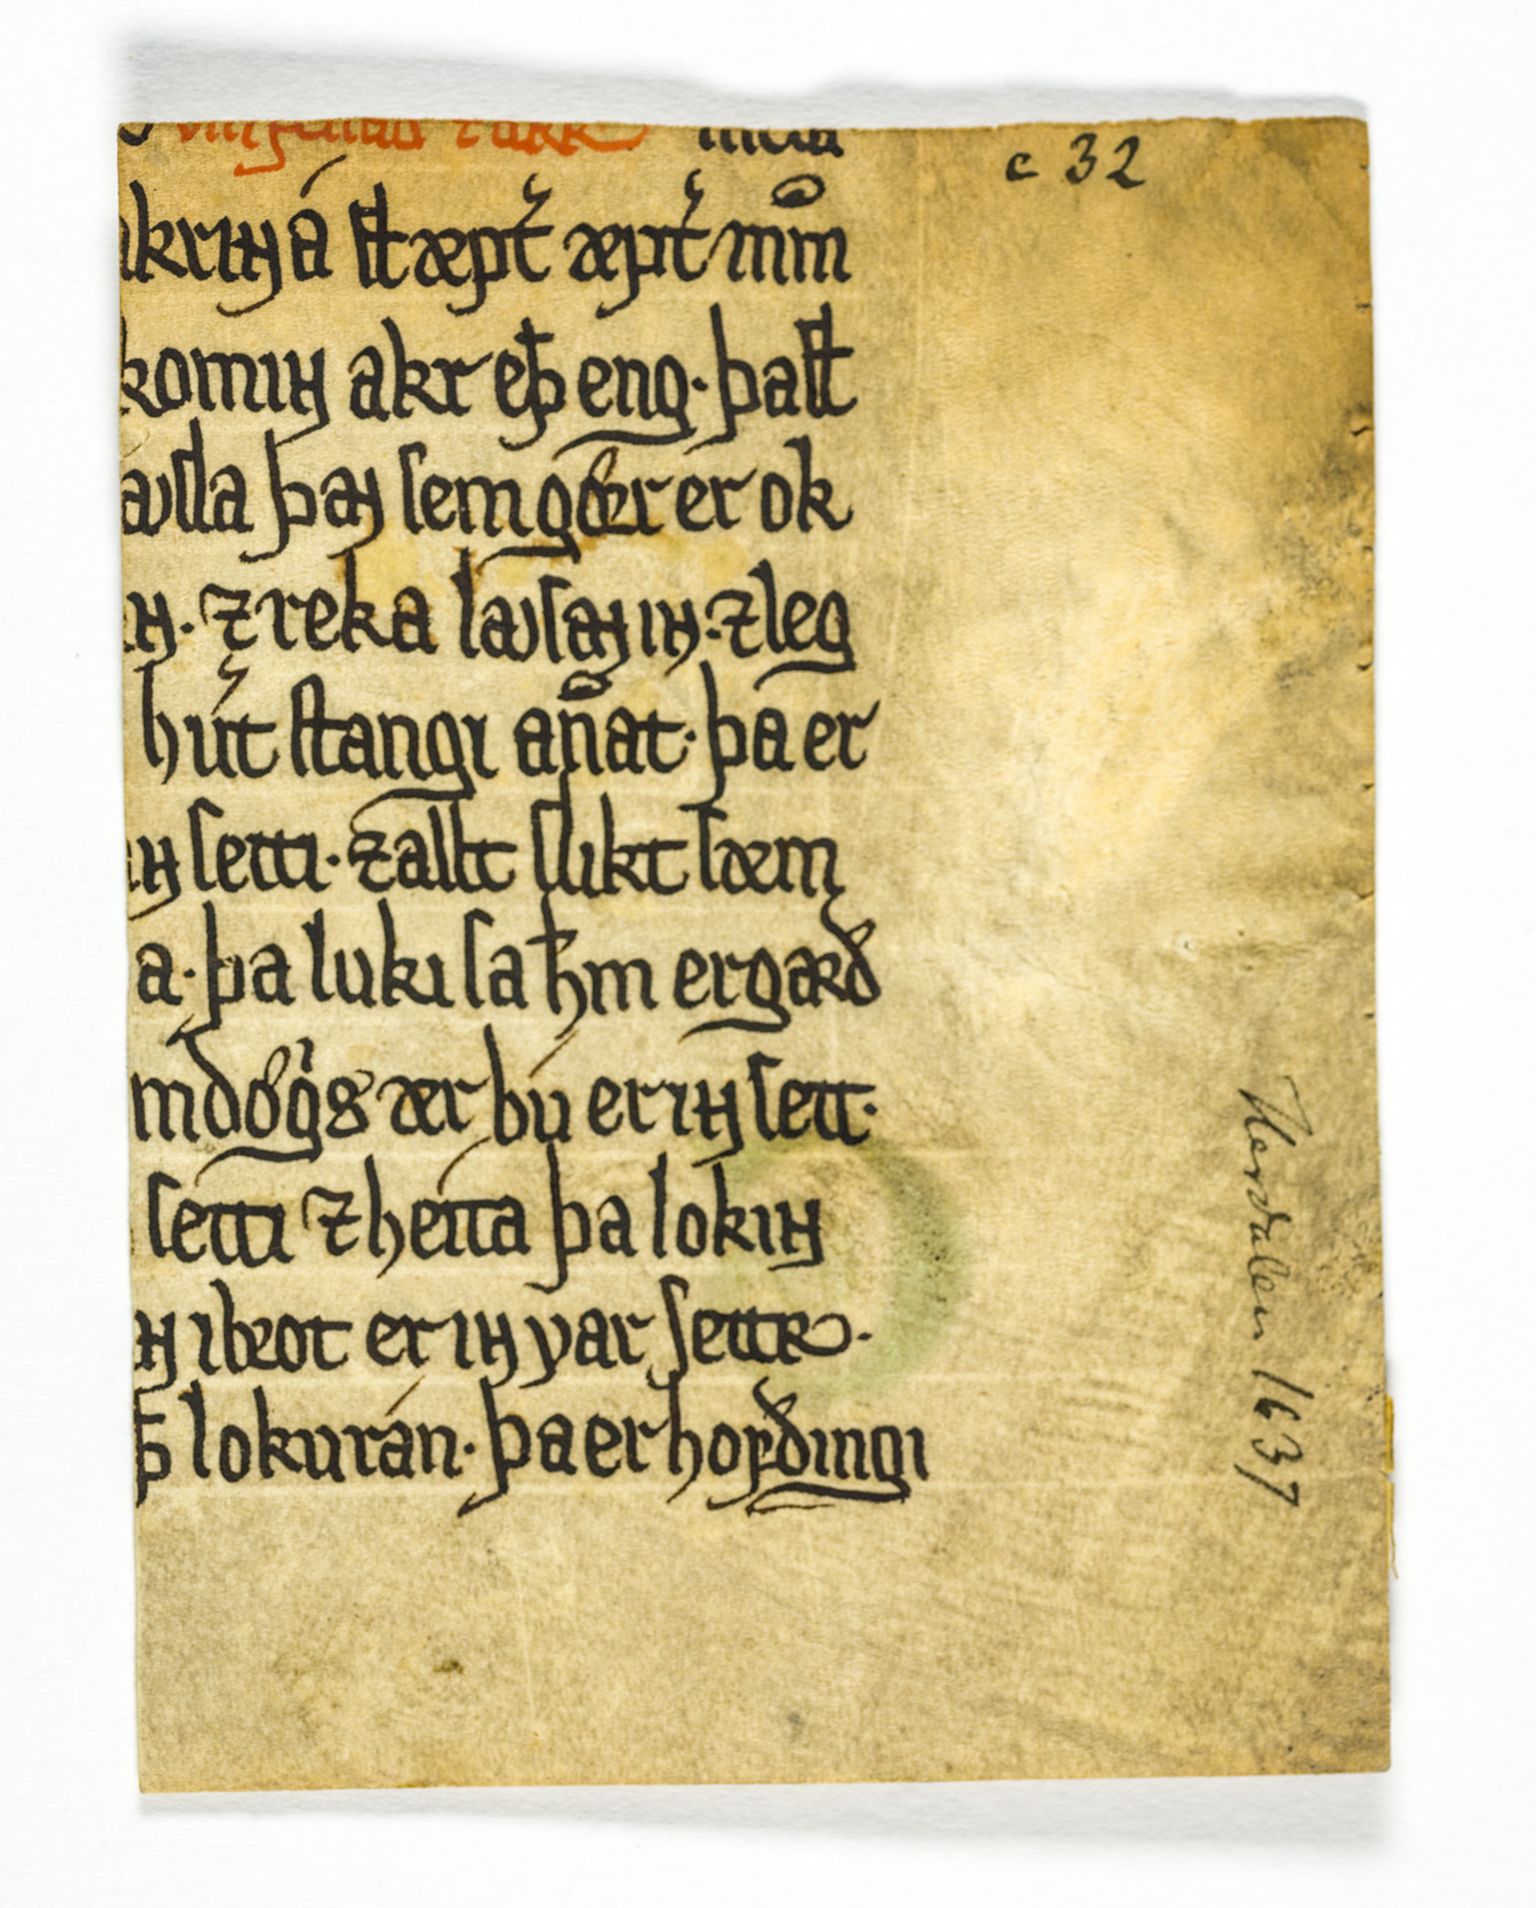 c 32
akrinn á ſt æpt᷎ æpt᷎ mm̊
komin akr eþ̄ eng. þa ſt
auſla þan ſem gꝍrer er ok
nn. ⁊ reka lauſan inn. ⁊ leg
hút ſtangi an̊at. þa er
inn ſetti. ⁊ allt ſlikt ſæm
a. þa luki ſa ħm er garð
m dꝍg͛s ær bú er inn ſett.
ſetti ⁊ heíta þa lokinn
nn i brot er inn var ſettr.
þ̄ lokurán. þa er hofðingi
Herdalen 1637